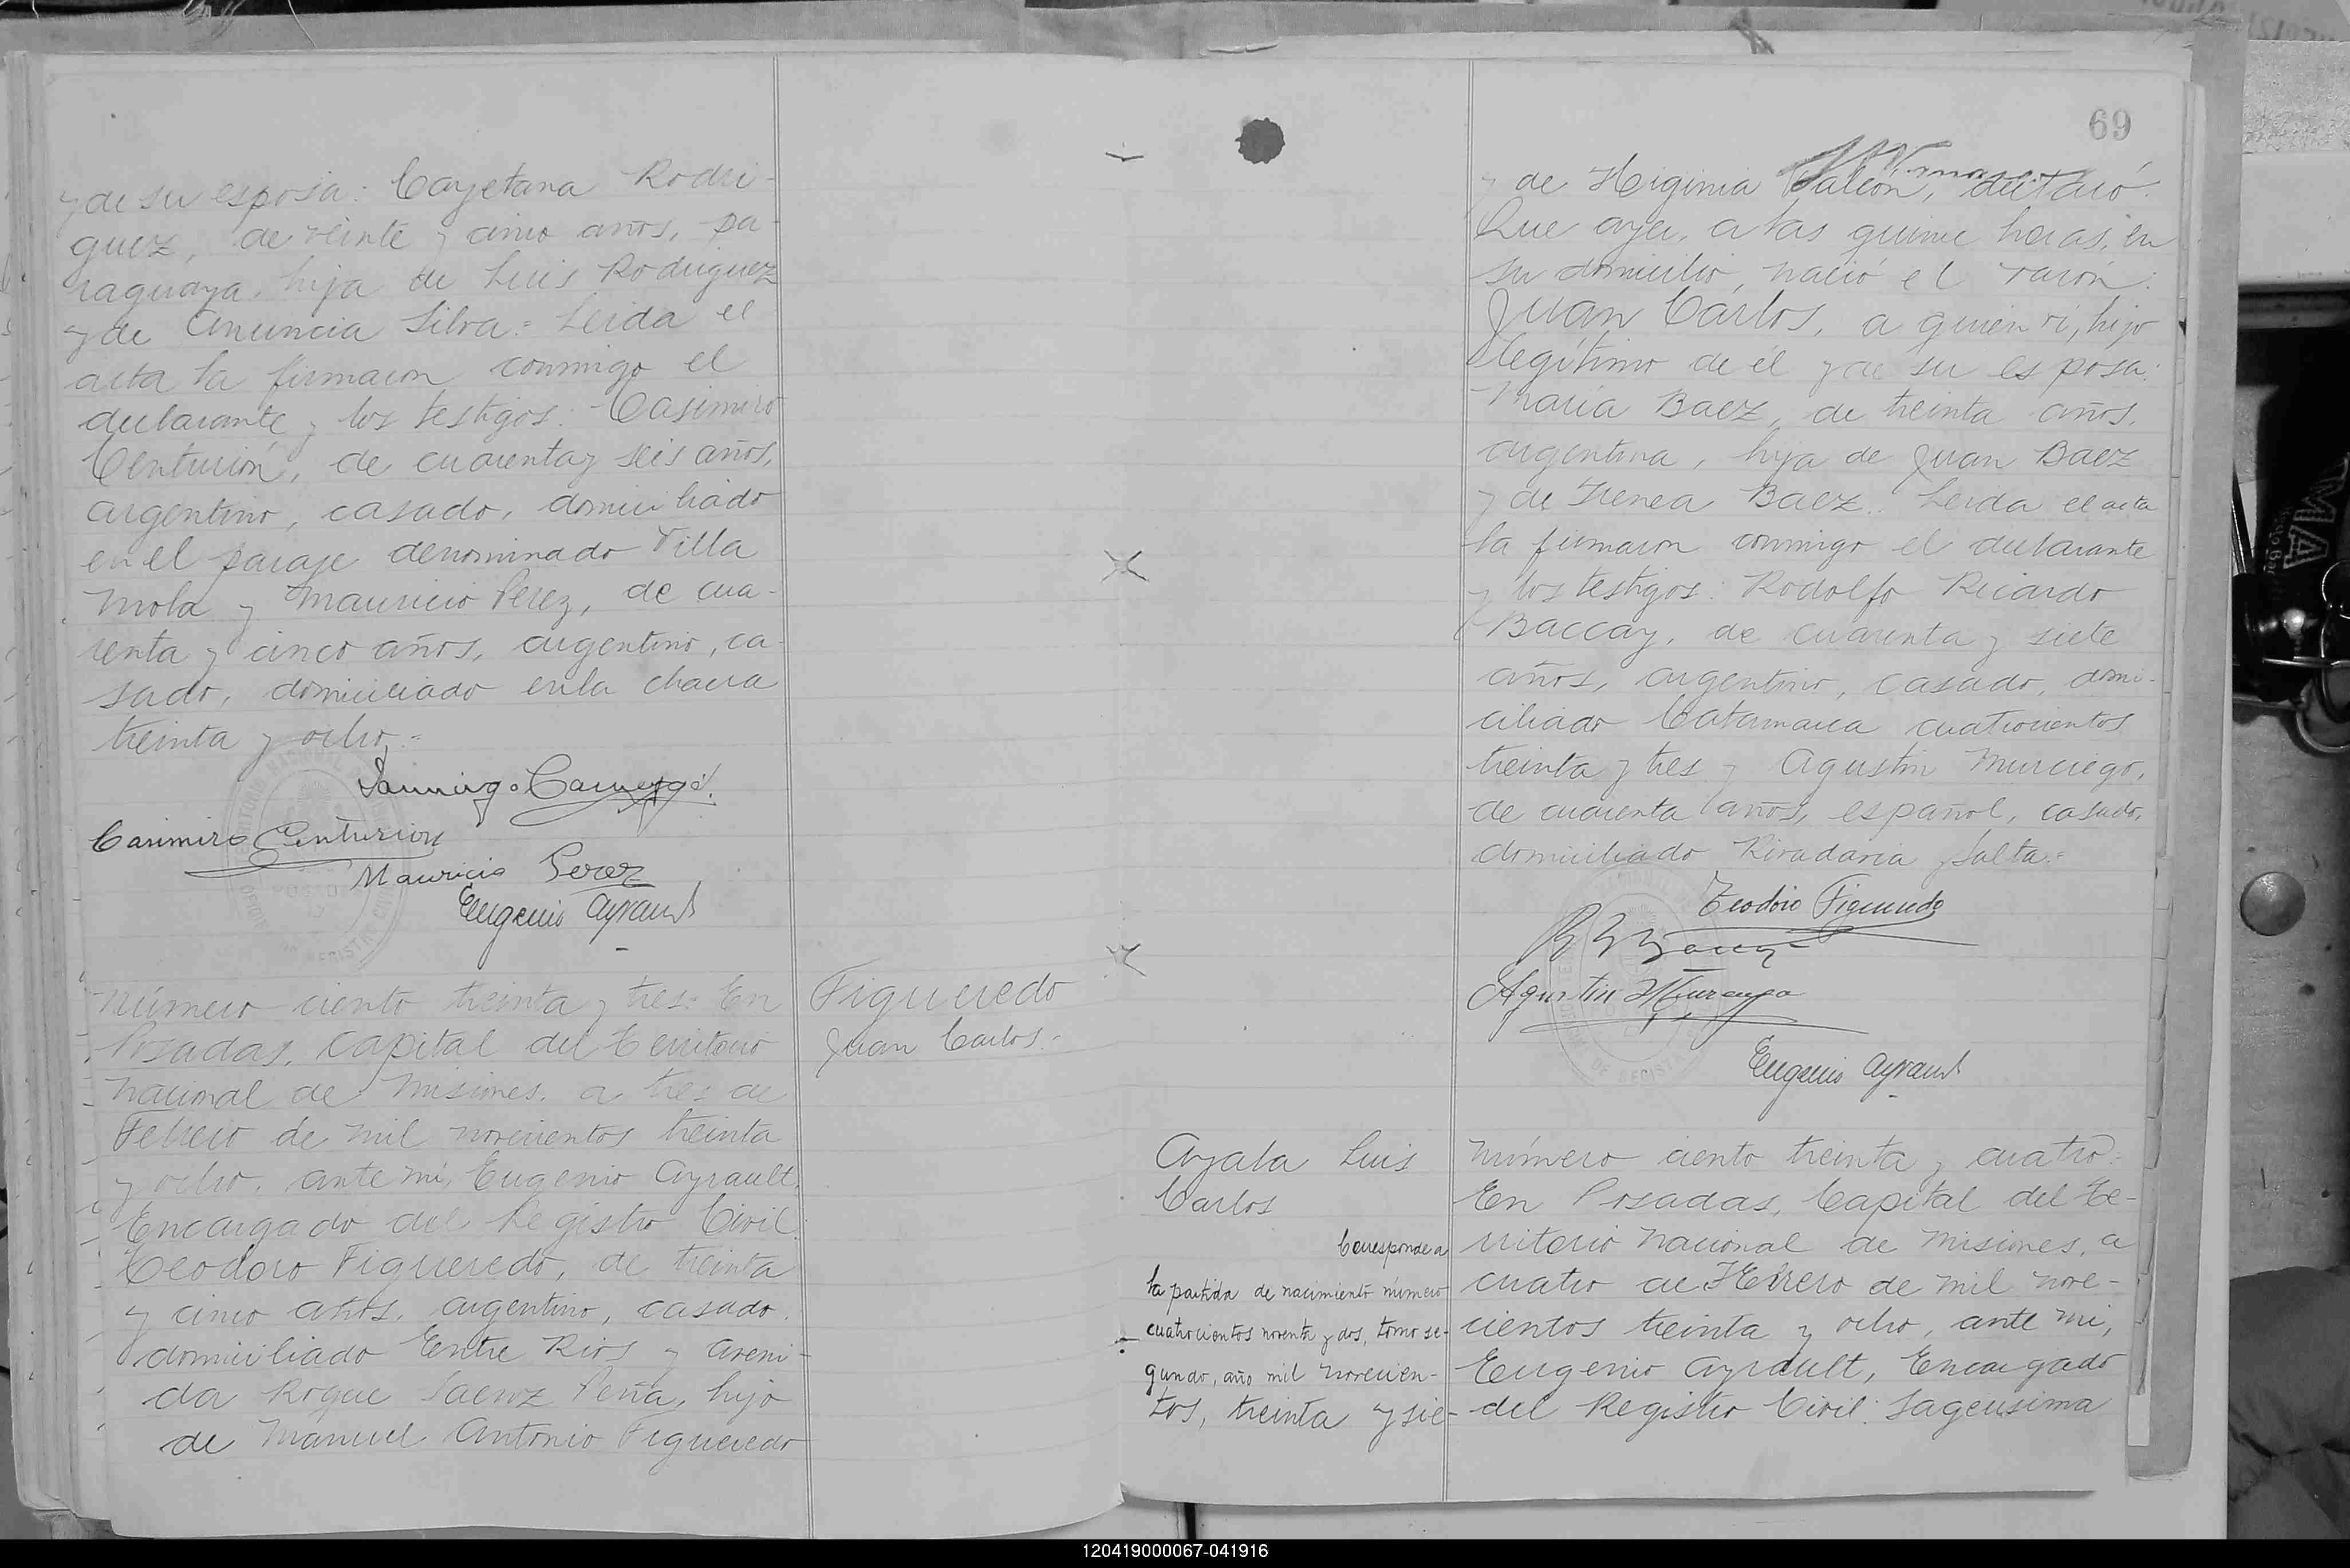 y de su esposa: Cayetana Rodri-
guez, de veinte y cinco años, pa-
raguaya, hija de Luis Rodriguez
y de Anuncia Silva.= Leida el
acta la firmaron conmigo el
declarante y los testigos: Casimiro
Centurión, de cuarenta y seis años,
argentino, casado, domiciliado
en el paraje denominado Villa
Mola y Mauricio Perez, de cua-
renta y cinco años, argentino, ca-
sado, domiciliado en la chacra
treinta y ocho.=
Casimiro Centurion
Mauricio Perez
Eugenio Ayrault
Número ciento treinta y tres: En
Posadas, Capital del Territorio
Nacional de Misiones, a tres de
Febrero de mil novecientos treinta
y ocho, ante mi, Eugenio Ayrault,
Encargado del Registro Civil:
Teodoro Figueredo, de treinta
y cinco años, argentino, casado,
domiciliado Entre Rios y Aveni-
da Roque Saenz Peña, hijo
de Manuel Antonio Figueredo
Figueredo
Juan Carlos.-
69
y de Higinia declaró:
Que ayer, a las quince horas, en
su domicilio, nació el varón:
Juan Carlos, a quien vi, hijo
legítimo de él y de su esposa:
María Baez, de treinta años,
argentina, hija de Juan Baez
y de Irenea Baez. Leida el acta
la firmaron conmigo el declarante
y los testigos: Rodolfo Ricardo
Baccay, de cuarenta y siete
años, argentino, casado, domi-
ciliado Catamarca cuatrocientos
treinta y tres y Agustin Murciego,
de cuarenta años, español, casado,
domiciliado Rivadavia y Salta.=
Teodoro Figueredo
Agustin
Eugenio Ayrault
Ayala Luis
Carlos
Corresponde a
la partida de nacimiento número
cuatrocientos noventa y dos, tomo se-
gundo, año mil novecien-
tos, treinta y sie-
Número ciento treinta y cuatro:
En Posadas, Capital del Te-
rritorio Nacional de Misiones, a
cuatro de Febrero de mil nove-
cientos treinta y ocho, ante mi,
Eugenio Ayrault, Encargado
del Registro Civil:
120419000067-041916